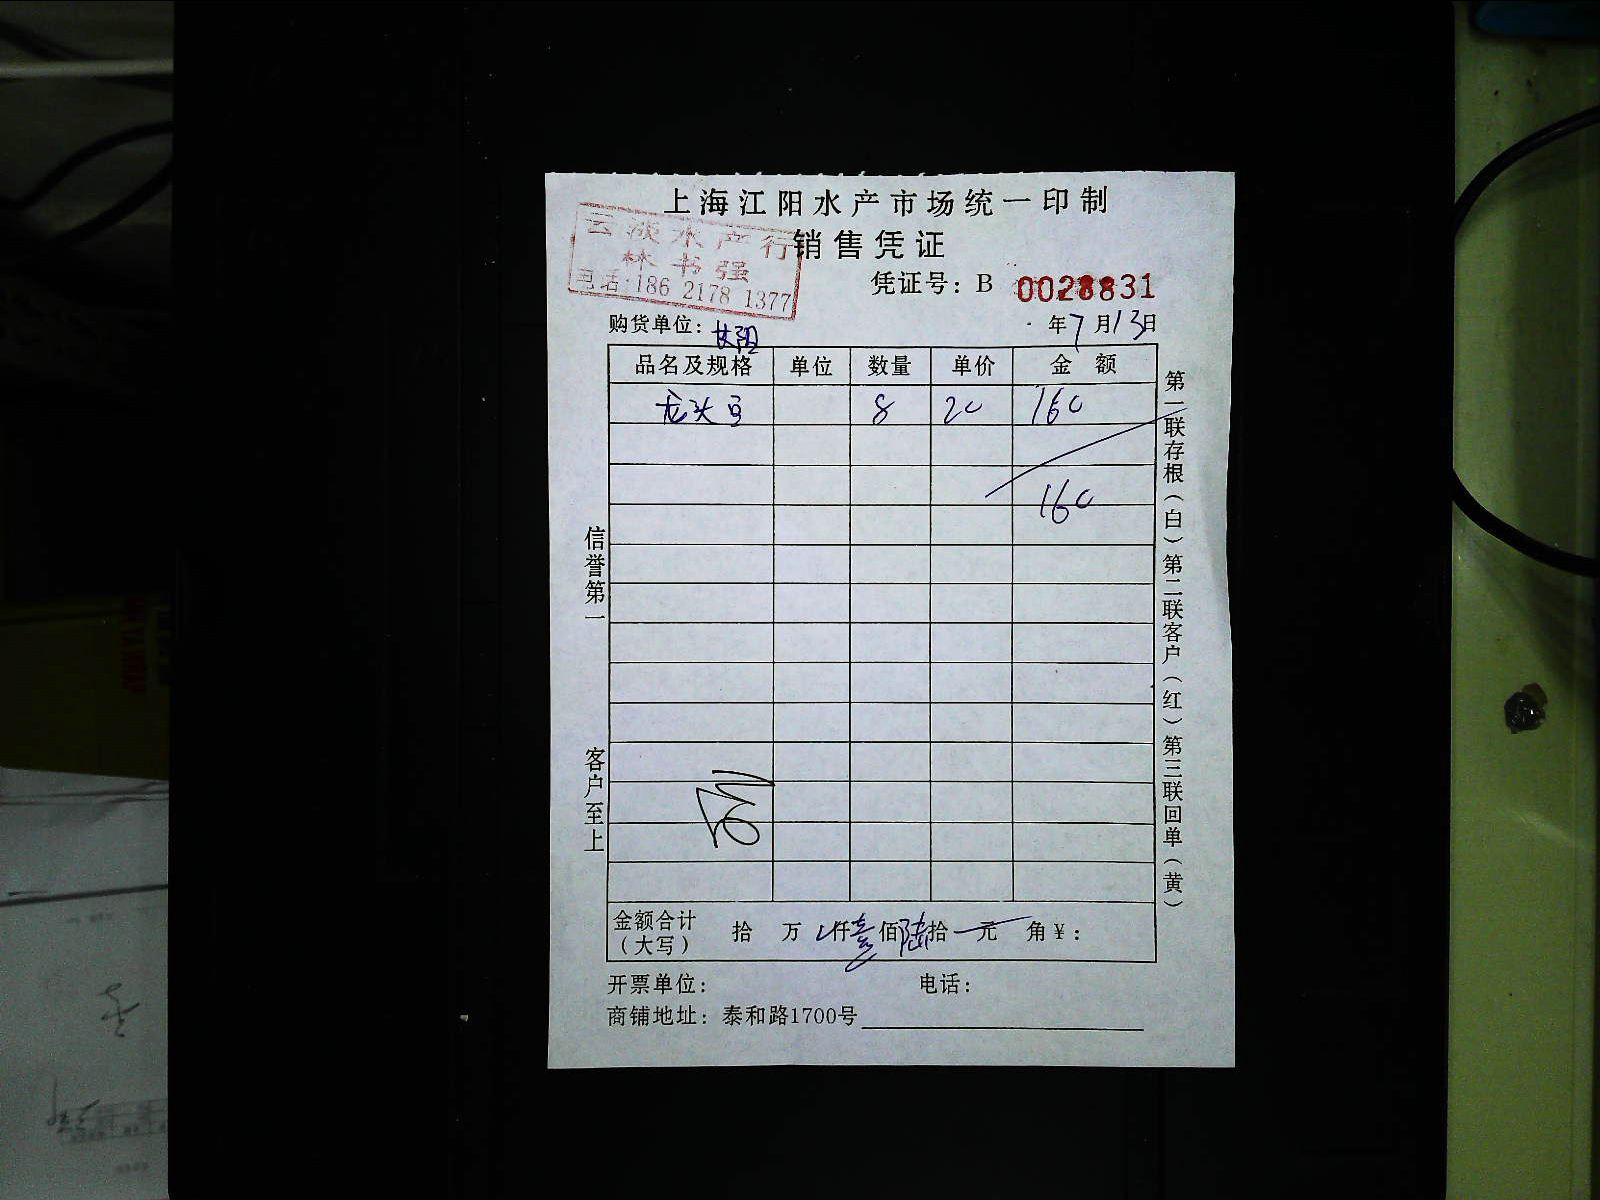 上海江阳水产市场统一印制
销售凭证
云淡水产行
林书强
电话:186 2178 1377
凭证号: B 0028831
购货单位:
年7月13日
品名及规格 单位 数量 单价 金额
龙头 8 20 160
160
信誉第一
客户至上
第一联存根(白)第二联客户(红)第三联回单(黄)
金额合计
(大写)
拾 万 仟壹佰陆拾 元 角¥:
开票单位: 电话:
商铺地址: 泰和路1700号